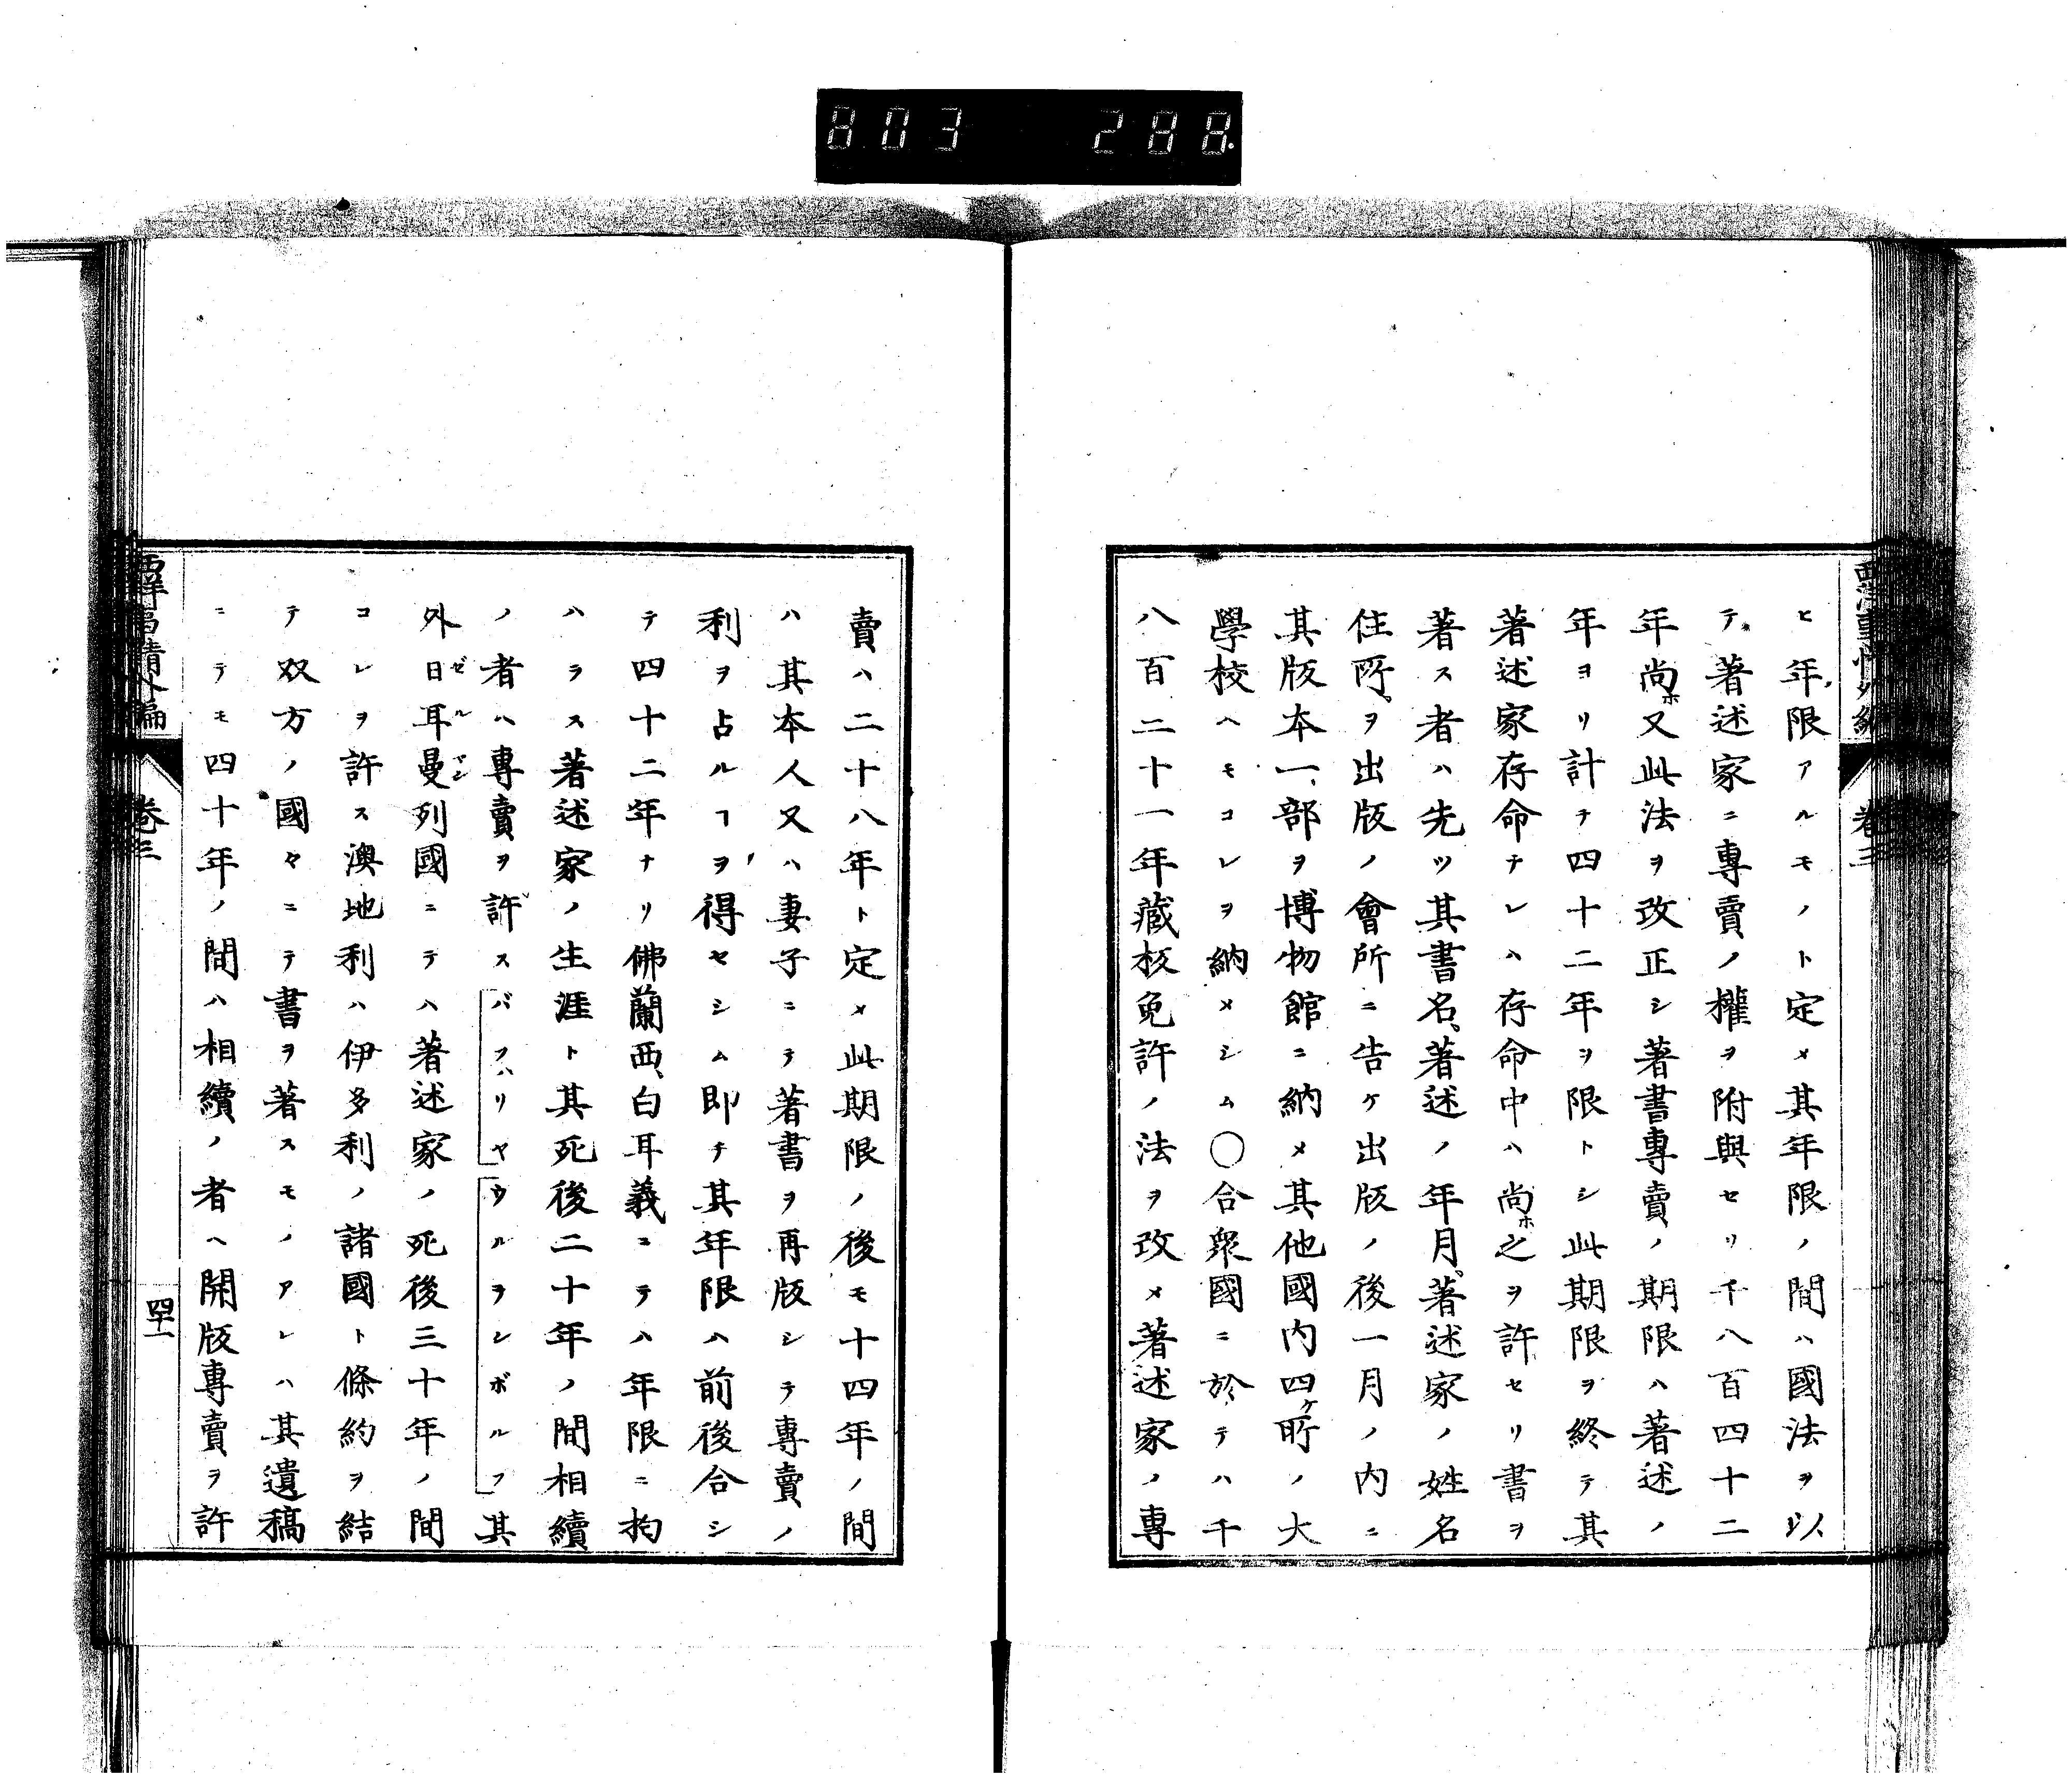 803 288
西洋事情外編 卷三
ヒ年限アルモノト定メ其年限ノ間ハ國法ヲ以
テ著述家ニ專賣ノ權ヲ附與セリ千八百四十二
年尚ホ又此法ヲ改正シ著書專賣ノ期限ハ著述ノ
年ヨリ計テ四十二年ヲ限トシ此期限ヲ終テ其
著述家存命ナレハ存命中ハ尚ホ之ヲ許セリ書ヲ
著ス者ハ先ツ其書名著述ノ年月著述家ノ姓名
住所ヲ出版ノ會所ニ告ケ出版ノ後一月ノ内ニ
其版本一部ヲ博物館ニ納メ其他國内四ケ所ノ大
學校ヘモコレヲ納メシム〇合衆國ニ於テハ千
八百二十一年藏板免許ノ法ヲ改メ著述家ノ專
賣ハ二十八年ト定メ此期限ノ後モ十四年ノ間
ハ其本人又ハ妻子ニテ著書ヲ再版シテ專賣ノ
利ヲ占ルヿヲ得セシム即チ其年限ハ前後合シ
テ四十二年ナリ佛蘭西白耳義ニテハ年限ニ拘
ハラス著述家ノ生涯ト其死後二十年ノ間相續
ノ者ハ專賣ヲ許スバフハリヤウルヲレボルフ其
外日耳曼列國ニテハ著述家ノ死後三十年ノ間
ゼルマン
コレヲ許ス澳地利ハ伊多利ノ諸國ト條約ヲ結
テ双方ノ國々ニテ書ヲ著スモノアレハ其遺稿
ニテモ四十年ノ間ハ相續ノ者ヘ開版專賣ヲ許
西洋事情外編 卷三 四十一